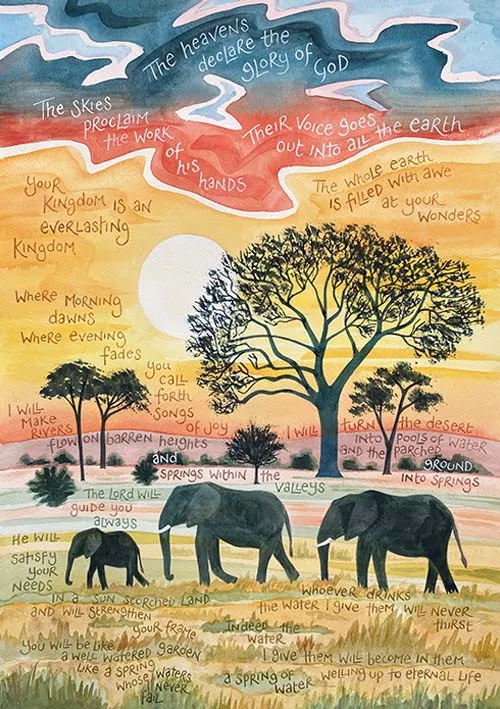 The heavens
declare the
glory of
God
The skies
proclaim
the work
of
his
hands
Their voice goes
out into all the earth
The whole earth
is filled with awe
at your
wonders
Your
Kingdom is an
everlasting
Kingdom
Where morning
dawns
Where evening
fades
you
call
forth
songs
of joy
I will
make
rivers
flow on barren heights
and
springs within the
valleys
I will turn the desert
into pools of water
and the parched
ground
into springs
The Lord will
guide you
always
He will
satisfy
your
needs
in a sun scorched land
and will strengthen
your frame
You will be like
a well watered garden
like a spring
whose waters
never
fail
Whoever drinks
the water I give them will never
thirst
Indeed the
water
I give them will become in them
a spring of
water welling up to eternal life